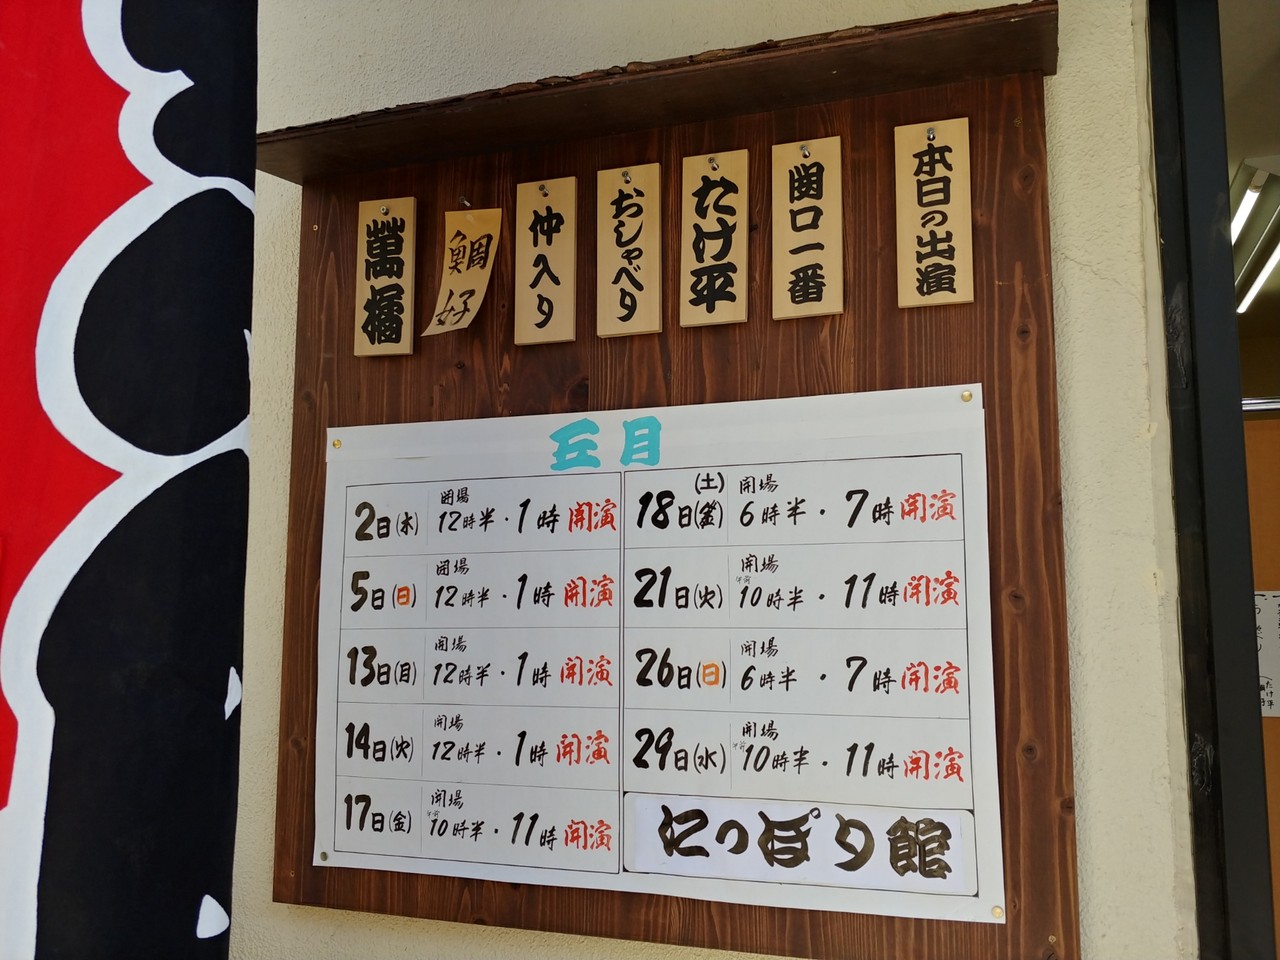 本日の出演
関口一番
たけ平
おしゃべり
仲入り
鯛好
萬橘
三月
2日(木) 開場 12時半・1時開演
5日(日) 開場 12時半・1時開演
13日(月) 開場 12時半・1時開演
14日(火) 開場 12時半・1時開演
17日(金) 開場 午前10時半・11時開演
18日(金)(土) 開場 6時半・7時開演
21日(火) 開場 午前10時半・11時開演
26日(日) 開場 6時半・7時開演
29日(水) 開場 午前10時半・11時開演
にっぽり館
たけ平